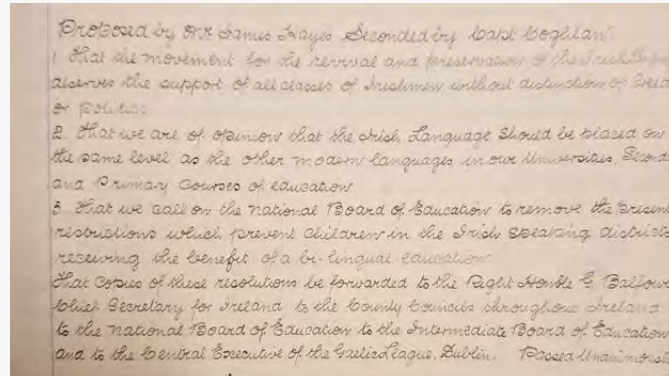 Proposed by Mr James Hayes Seconded by Capt Coghlan
1 That the movement for the revival and preservation of the Irish
deserves the support of all classes of Irishmen without distinction of Creed
or Politics
2. That we are of opinion that the Irish Language should be placed on
the same level as the other modern languages in our Universities, Second
and Primary Courses of education
3. That we call on the National Board of Education to remove the present
restrictions which prevent children in the Irish speaking districts
receiving the benefit of a bi-lingual education
That copies of these resolutions be forwarded to the Right Honble G Balfour
Chief Secretary for Ireland to the County Councils throughout Ireland
to the National Board of Education to the Intermediate Board of Education
and to the Central Executive of the Gaelic League, Dublin. Passed Unanimously